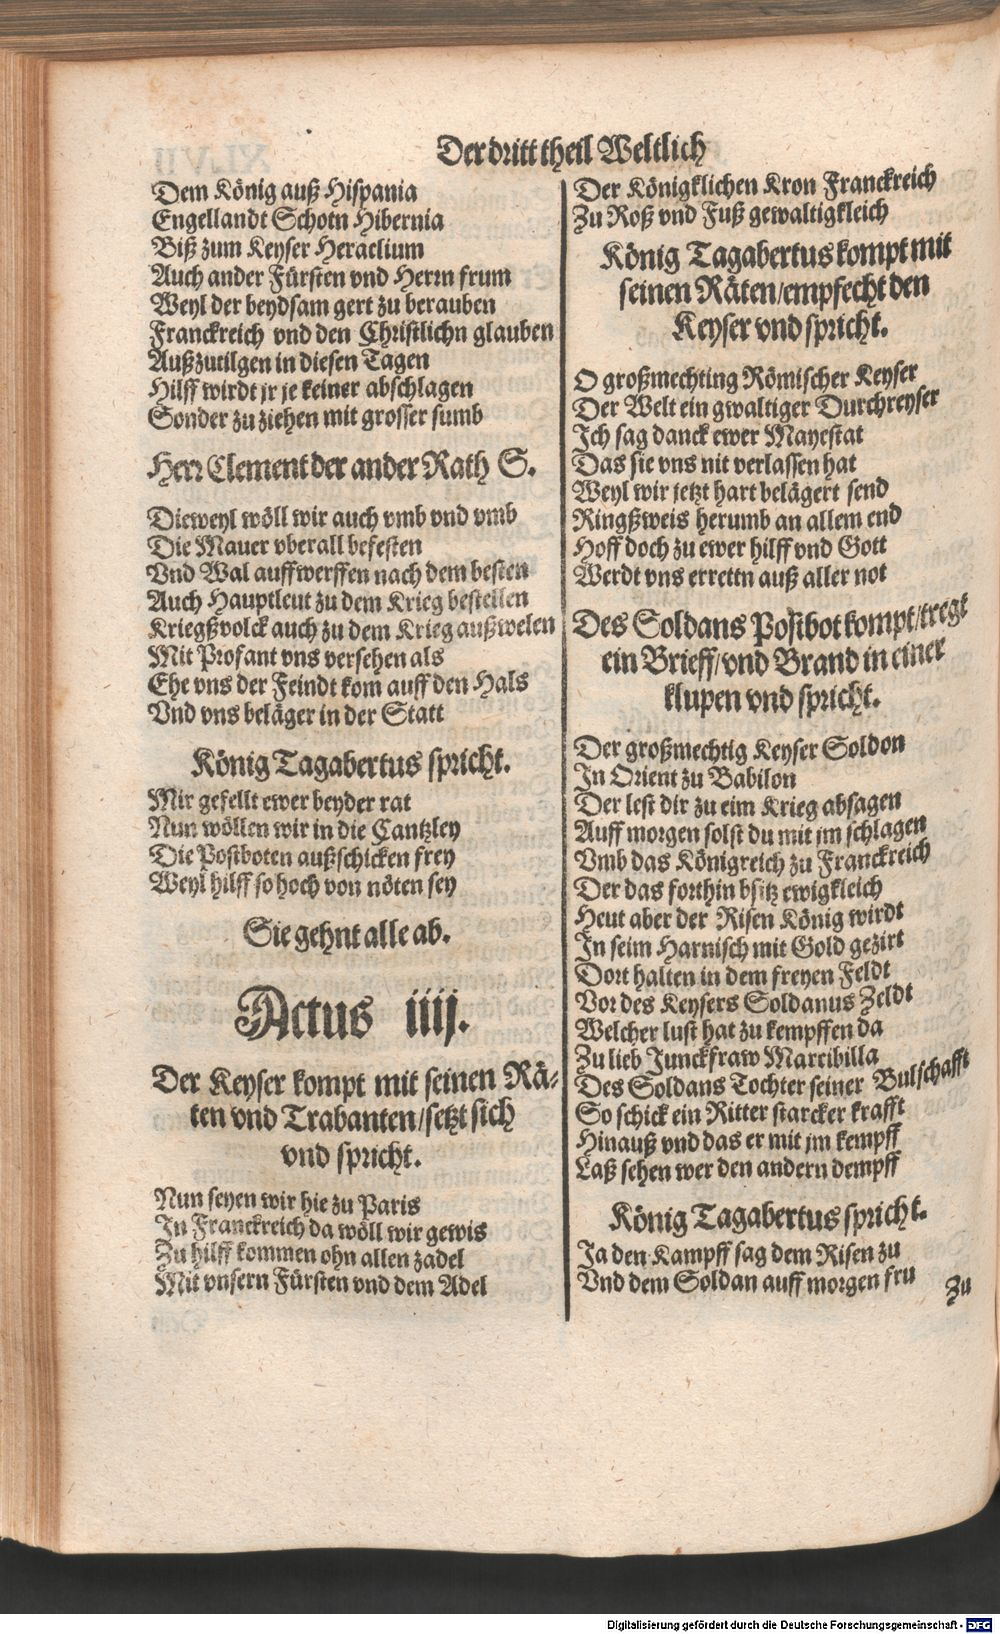 Der dritt theil Weltlich
Dem König auß Hispania
Engellandt Schotn Hibernia
Biß zum Keyser Heraclium
Auch ander Fürsten vnd Herrn frum
Weyl der beydsam gert zu berauben
Franckreich vnd den Christlichn glauben
Außzutilgen in diesen Tagen
Hilff wirdt jr je keiner abschlagen
Sonder zu ziehen mit grosser sumb
Herr Clement der ander Rath S.
Dieweyl wöll wir auch vmb vnd vmb
Die Mauer vberall befesten
Vnd Wal auffwerffen nach dem besten
Auch Hauptleut zu dem Krieg bestellen
Kriegßvolck auch zu dem Krieg außwelen
Mit Profant vns versehen als
Ehe vns der Feindt kom auff den Hals
Vnd vns beläger in der Statt
König Tagabertus spricht.
Mir gefellt ewer beyder rat
Nun wöllen wir in die Cantzley
Die Postboten außschicken frey
Weyl hilff so hoch von nöten sey
Sie gehnt alle ab.
Actus iiij.
Der Keyser kompt mit seinen Rä-
ten vnd Trabanten/setzt sich
vnd spricht.
Nun seyen wir hie zu Paris
In Franckreich da wöll wir gewis
Zu hilff kommen ohn allen zadel
Mit vnsern Fürsten vnd dem Adel
Der Königklichen Kron Franckreich
Zu Roß vnd Fuß gewaltigkleich
König Tagabertus kompt mit
seinen Räten/empfecht den
Keyser vnd spricht.
O großmechting Römischer Keyser
Der Welt ein gwaltiger Durchreyser
Ich sag danck ewer Mayestat
Das sie vns nit verlassen hat
Weyl wir jetzt hart belägert send
Ringßweis herumb an allem end
Hoff doch zu ewer hilff vnd Gott
Werdt vns errettn auß aller not
Des Soldans Postbot kompt/tregt
ein Brieff/vnd Brand in einer
klupen vnd spricht.
Der großmechtig Keyser Soldon
In Orient zu Babilon
Der lest dir zu eim Krieg absagen
Auff morgen solst du mit jm schlagen
Vmb das Königreich zu Franckreich
Der das forthin bsitz ewigkleich
Heut aber der Risen König wirdt
In seim Harnisch mit Gold gezirt
Dort halten in dem freyen Feldt
Vor des Keysers Soldanus Zeldt
Welcher lust hat zu kempffen da
Zu lieb Junckfraw Marcibilla
Des Soldans Tochter seiner Bulschafft
So schick ein Ritter starcker krafft
Hinauß vnd das er mit jm kempff
Laß sehen wer den andern dempff
König Tagabertus spricht.
Ja den Kampff sag dem Risen zu
Vnd dem Soldan auff morgen fru
Zu
Digitalisierung gefördert durch die Deutsche Forschungsgemeinschaft - DFG